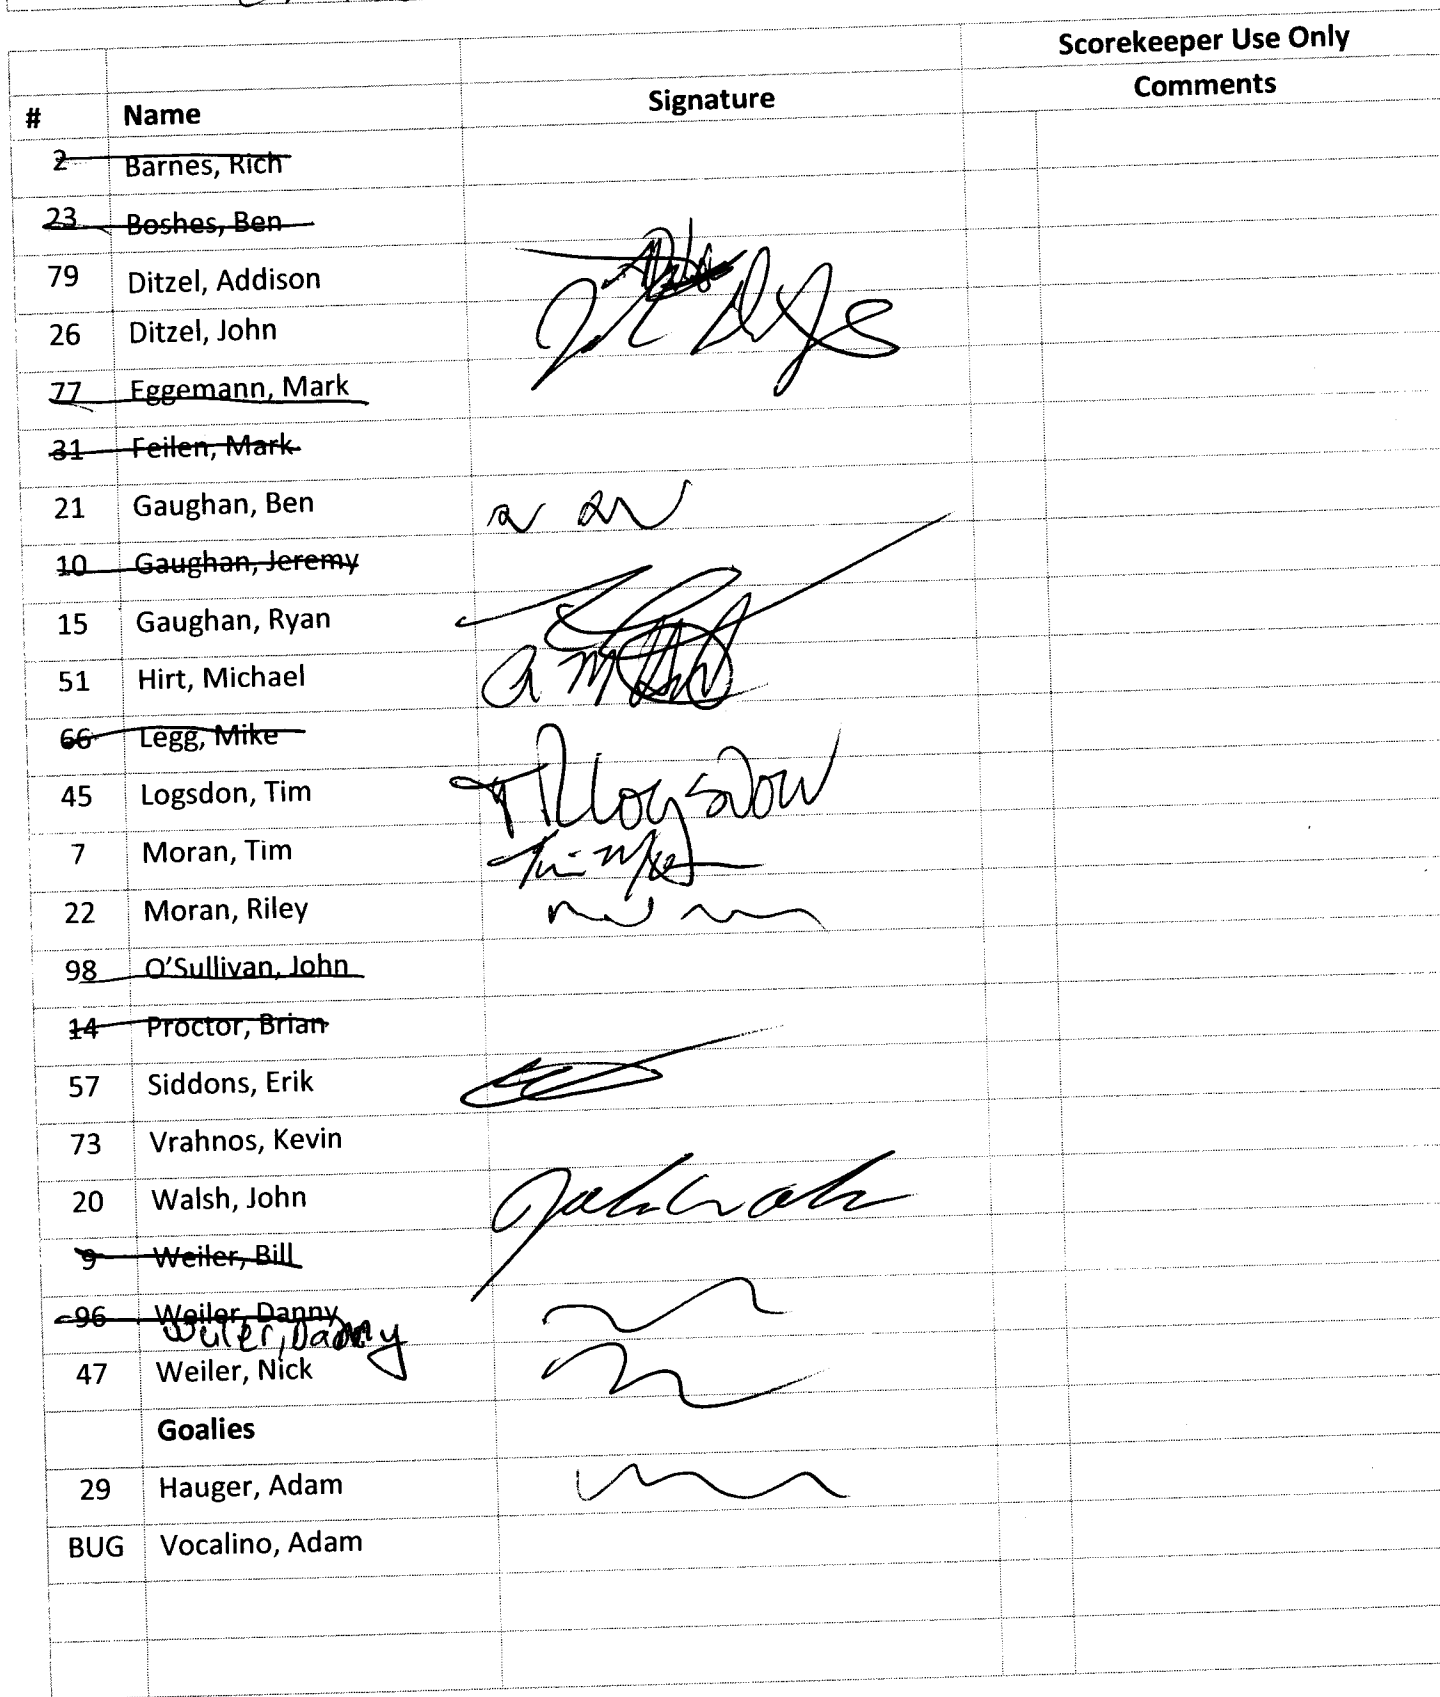 Scorekeeper Use Only
# Name Signature Comments
2 Barnes, Rich
23 Boshes, Ben
79 Ditzel, Addison
26 Ditzel, John
77 Eggemann, Mark
31 Feilen, Mark
21 Gaughan, Ben
10 Gaughan, Jeremy
15 Gaughan, Ryan
51 Hirt, Michael
66 Legg, Mike
45 Logsdon, Tim TRLogsdon
7 Moran, Tim
22 Moran, Riley
98 O'Sullivan, John
14 Proctor, Brian
57 Siddons, Erik
73 Vrahnos, Kevin
20 Walsh, John
9 Weiler, Bill
96 Weiler, Danny
Weiler, Danny
47 Weiler, Nick
Goalies
29 Hauger, Adam
BUG Vocalino, Adam